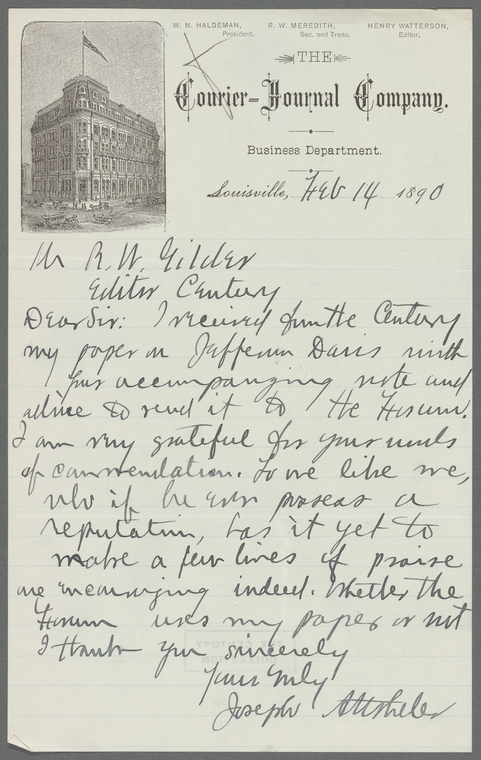 W. N. HALDEMAN, R. W. MEREDITH, HENRY WATTERSON,
President. Sec. and Treas. Editor.
THE
Courier-Journal Company.
Business Department.
Louisville, Feb 14 1890
Mr R. W. Gilder
Editor Century
Dear Sir: I received from the Century
my paper on Jefferson Davis with
your accompanying note and
advice to send it to the Forum.
I am very grateful for your words
of commendation. To one like me,
who if he ever possess a
reputation, has it yet to
make a few lines of praise
are encouraging indeed. Whether the
Forum uses my paper or not
I thank you sincerely
Yours truly
Joseph Altsheler